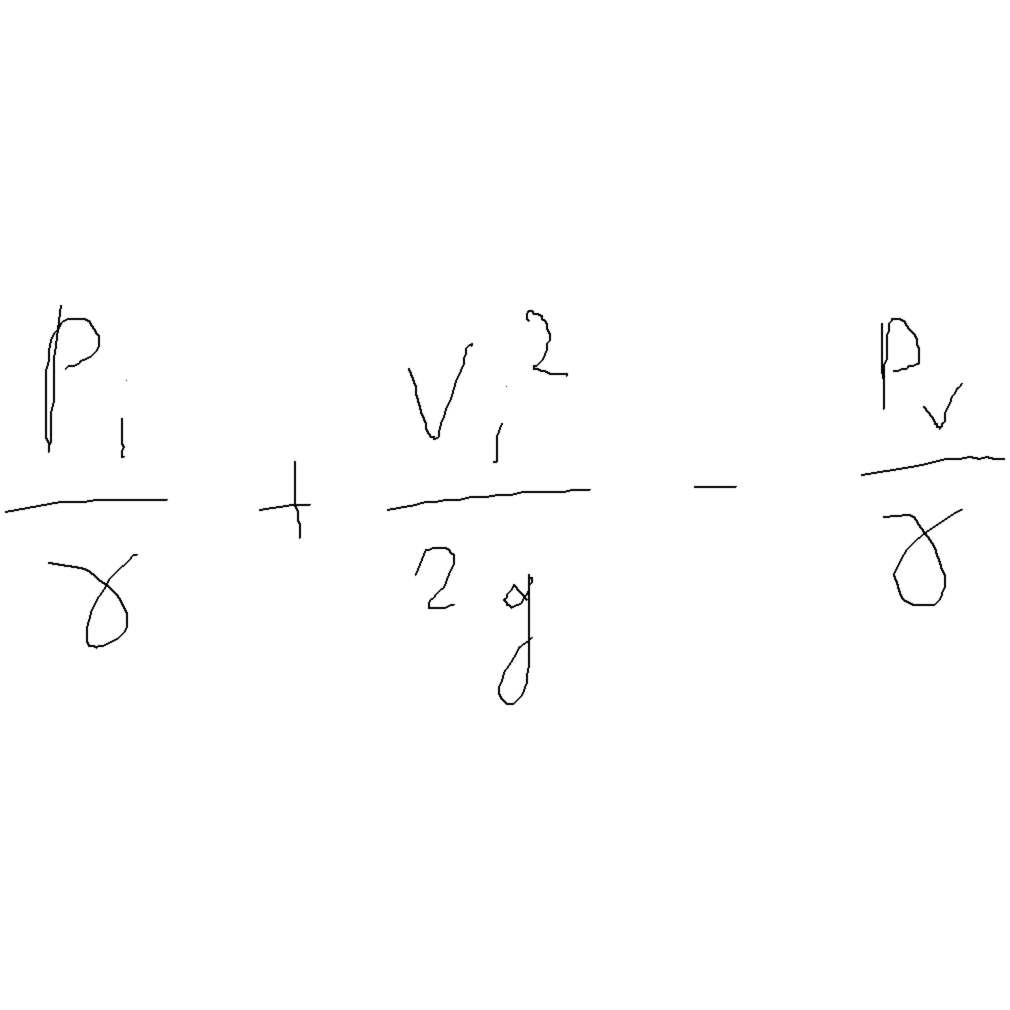 \frac{P_i}{\gamma} + \frac{V_i^2}{2g} - \frac{P_v}{\gamma}